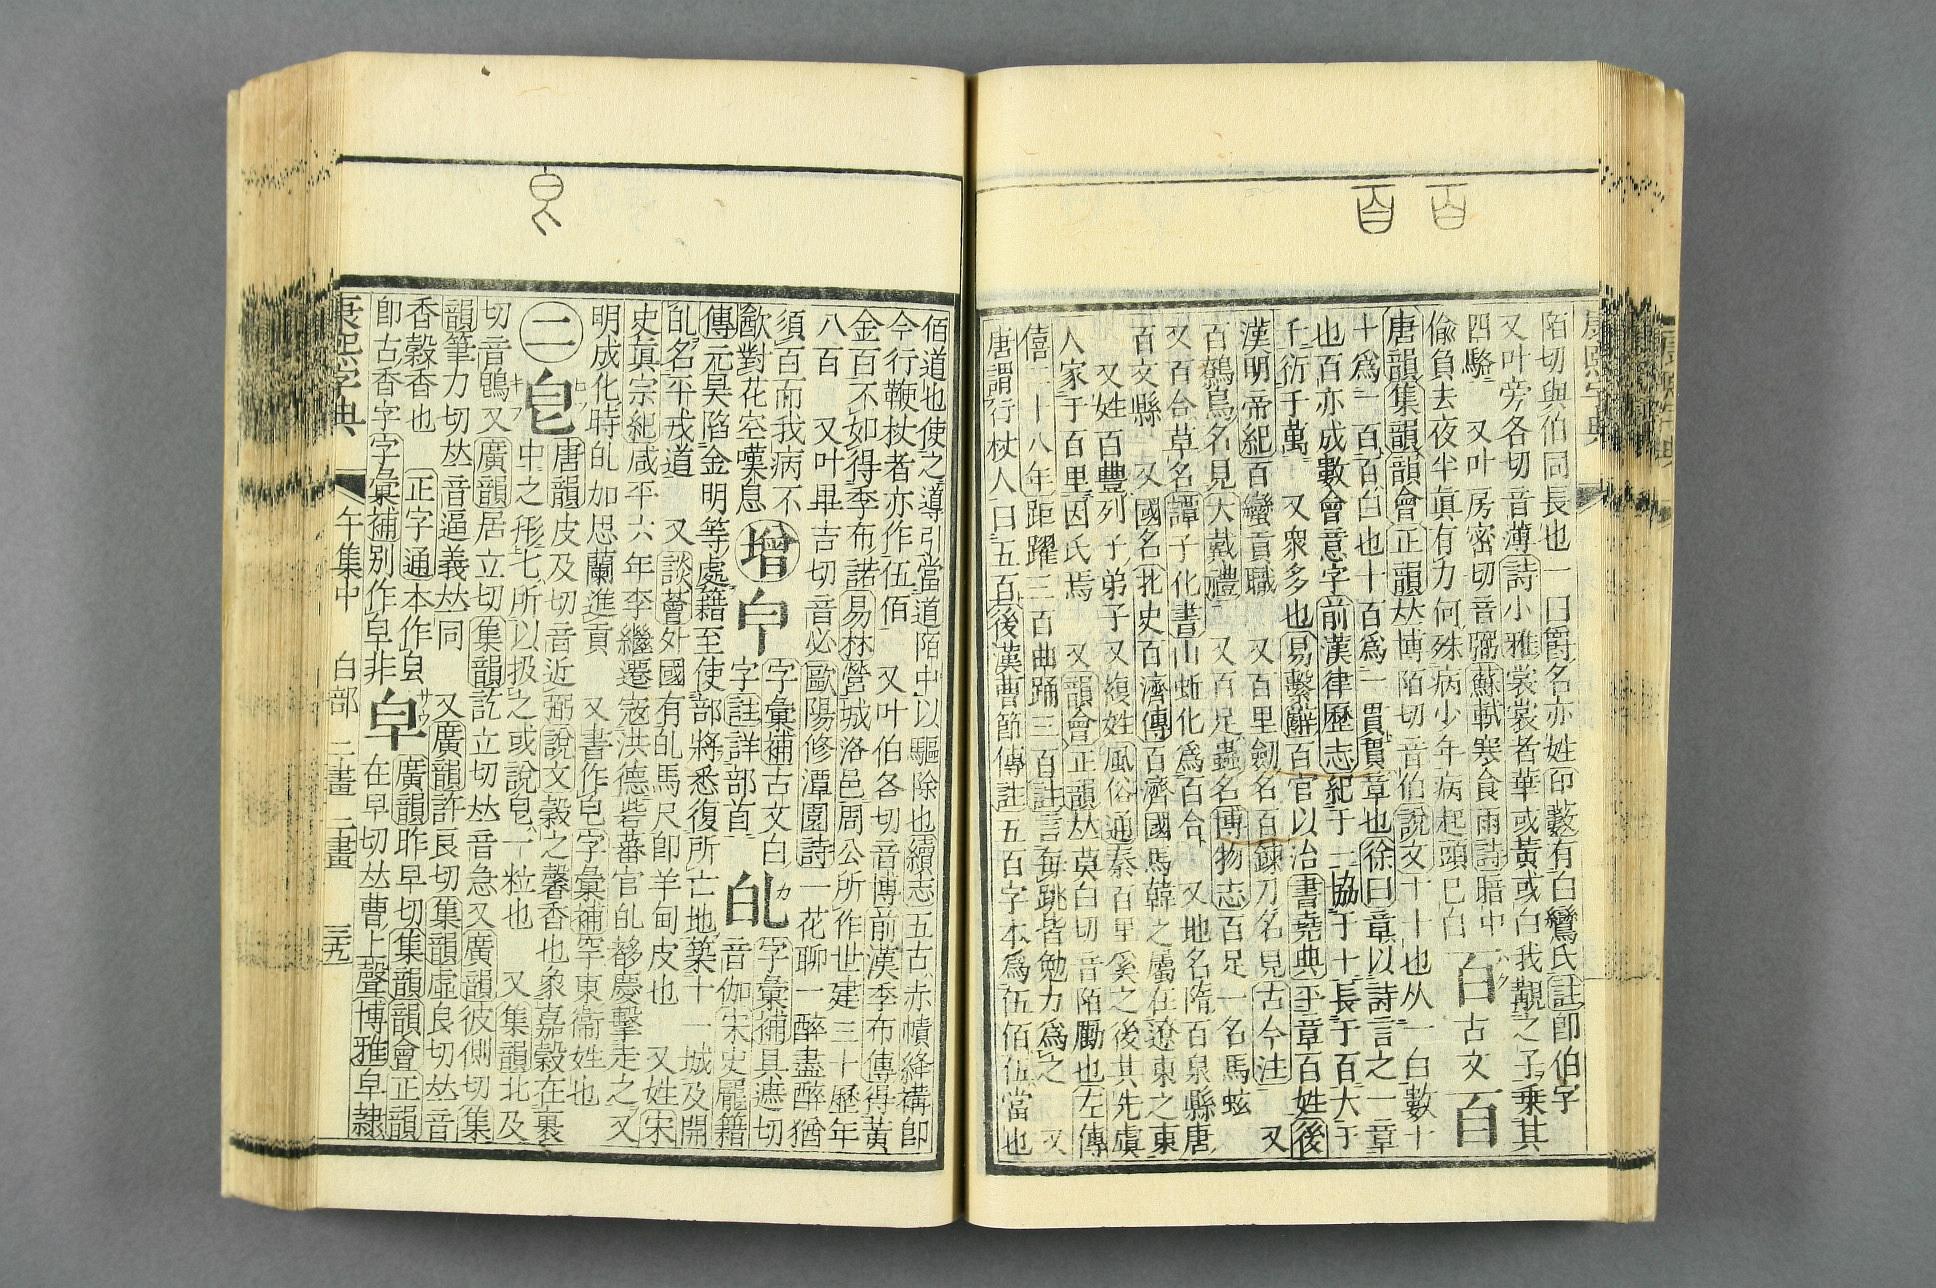 百 百
康熙字典
陌切與伯同長也一曰爵名亦姓印藪有白鸞氏註卽伯字
又叶旁各切音薄詩小雅裳裳者華或黃或白我覯之子乘其
四駱 又叶房密切音弼蘇軾寒食雨詩暗中
偸負去夜半眞有力何殊病少年病起頭已白 百ハク古文𦣻
唐韻集韻韻會正韻𠀤博陌切音伯說文十十也从一白數十
十爲一百百白也十百爲一貫貫章也徐曰章以詩言之一章
也百亦成數會意字前漢律歷志紀于一協于十長于百大于
千衍于萬 又衆多也易繫辭百官以治書堯典平章百姓後
漢明帝紀百蠻貢職 又百里劒名百鍊刀名見古今注 又
百鷯鳥名見大戴禮 又百足蟲名博物志百足一名馬蚿
又百合草名譚子化書山蚯化爲百合 又地名隋百泉縣唐
百丈縣 又國名北史百濟傳百濟國馬韓之屬在遼東之東
又姓百豐列子弟子又複姓風俗通秦百里奚之後其先虞
人家于百里因氏焉 又韻會正韻𠀤莫白切音陌勵也左傳
僖二十八年距躍三百曲踊三百註言每跳皆勉力爲之 又
唐謂行杖人曰五百後漢曹節傳註五百字本爲伍佰伍當也
皀
佰道也使之導引當道陌中以驅除也續志五百赤幘絳褠卽
今行鞭杖者亦作伍佰 又叶伯各切音博前漢季布傳得黃
金百不如得季布諾易林營城洛邑周公所作世建三十歷年
八百 又叶畢吉切音必歐陽修潭園詩一花聊一醉盡醉猶
須百而我病不
歐對花空嘆息 增 𤼽 字彙補古文白
字註詳部首 癿カ 字彙補具遮切
音伽宋史龐籍
傳元昊陷金明等處籍至使部將悉復所亡地築十一城及開
癿名平戎道 又談薈外國有癿馬尺卽羊甸皮也 又姓宋
史眞宗紀咸平六年李繼遷宼洪德砦蕃官癿𨞬慶擊走之又
明成化時癿加思蘭進貢 又書作皀字彙補罕東衞姓也
二 皀 唐韻皮及切音近弼說文穀之馨香也象嘉穀在裹
中之形匕所以扱之或說皀一粒也 又集韻北及
切音鴖又廣韻居立切集韻訖立切𠀤音急又廣韻彼側切集
韻筆力切𠀤音逼義𠀤同 又廣韻許良切集韻虛良切𠀤音
香穀香也 正字通本作皀
卽古香字字彙補別作皁非 皁サウ 廣韻昨早切集韻韻會正韻
在早切𠀤曹上聲博雅皁隸
康熙字典 午集中 白部 一畫 二畫 三五